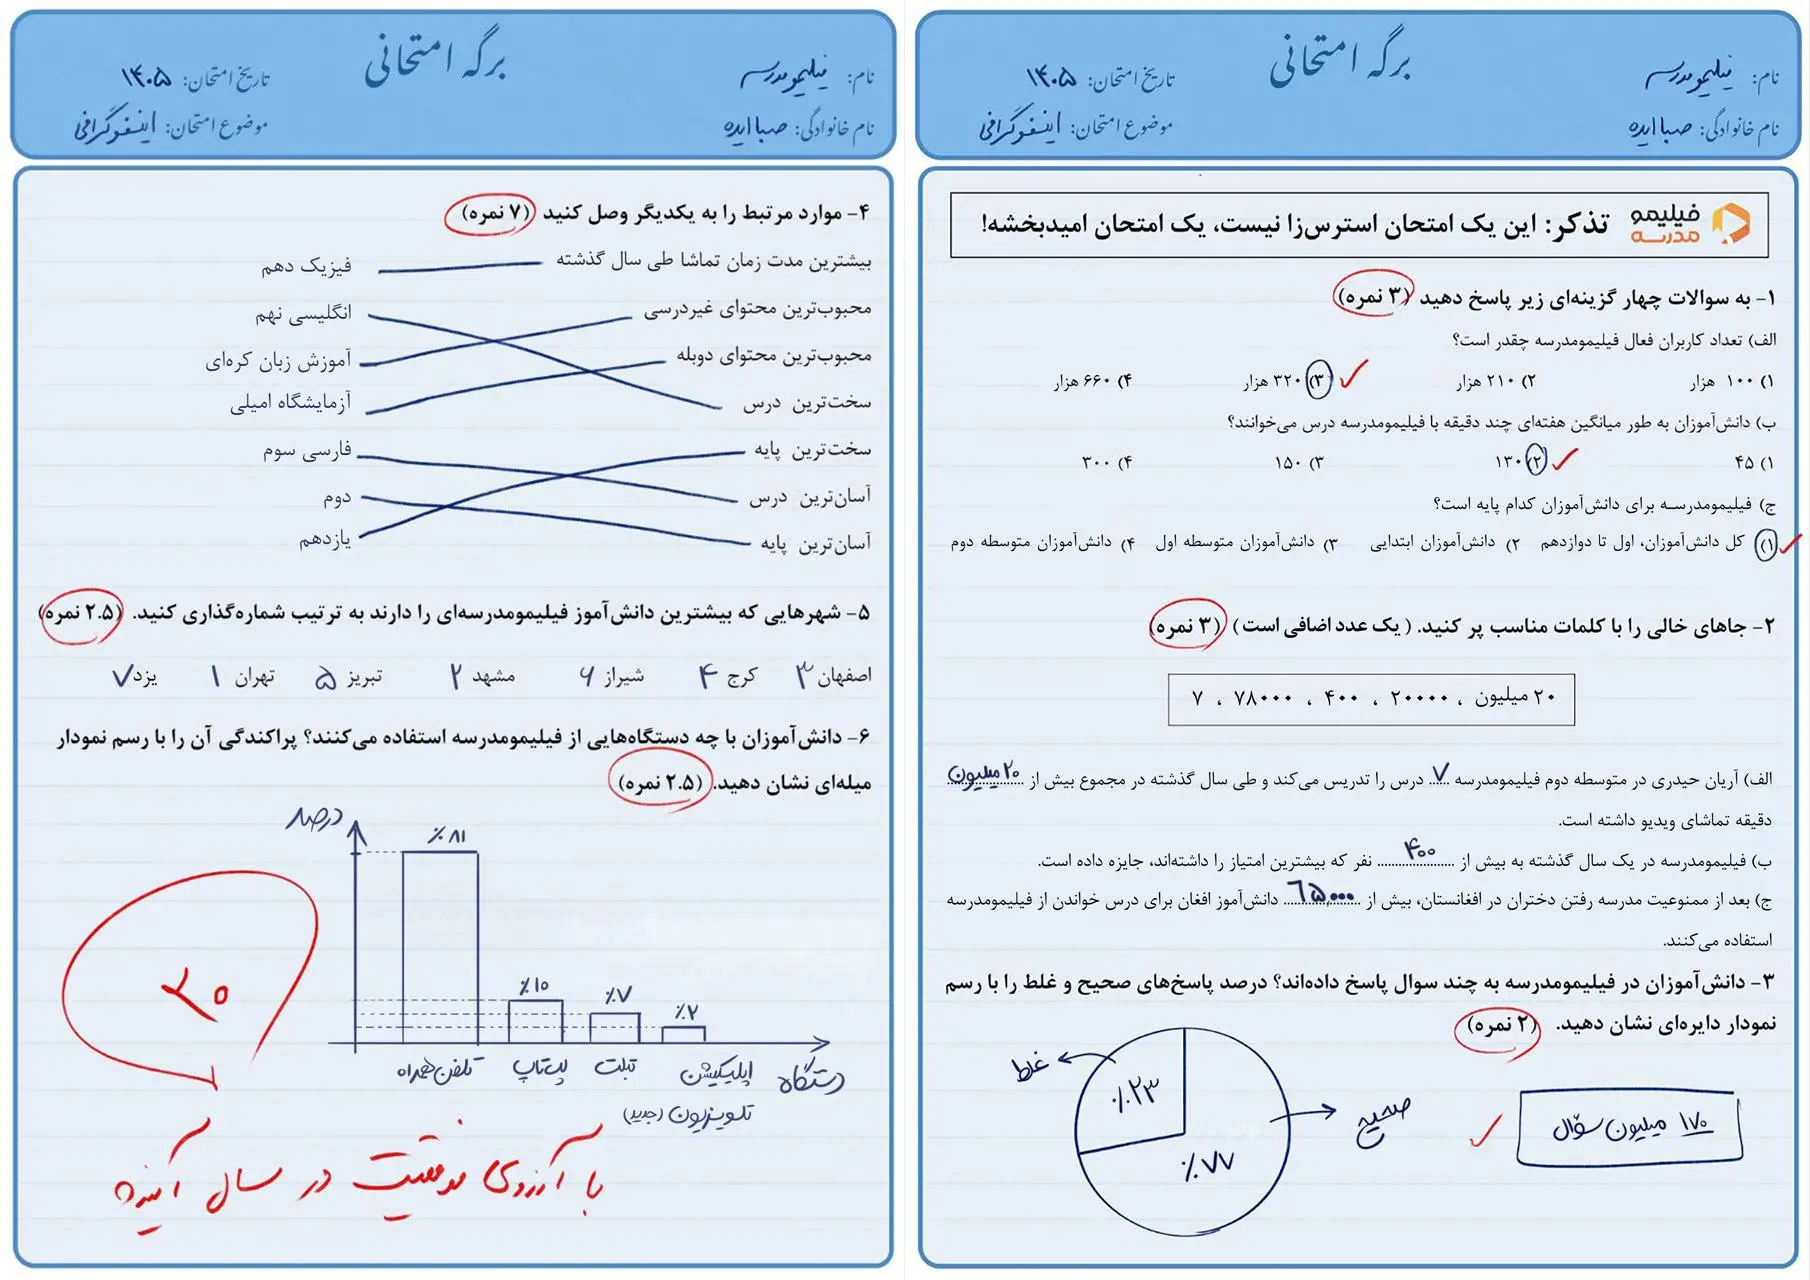 برگه امتحانی
نام: فیلیمو مدرسه
تاریخ امتحان: ۱۴۰۵
نام خانوادگی: صبا ایده
موضوع امتحان: اینفوگرافی
فیلیمو مدرسه
تذکر: این یک امتحان استرس‌زا نیست، یک امتحان امیدبخشه!
۱- به سوالات چهار گزینه‌ای زیر پاسخ دهید (۳ نمره)
الف) تعداد کاربران فعال فیلیمومدرسه چقدر است؟
۱) ۱۰۰ هزار ۲) ۲۱۰ هزار ۳) ۳۲۰ هزار ۴) ۶۶۰ هزار
ب) دانش‌آموزان به طور میانگین هفته‌ای چند دقیقه با فیلیمومدرسه درس می‌خوانند؟
۱) ۴۵ ۲) ۱۳۰ ۳) ۱۵۰ ۴) ۳۰۰
ج) فیلیمومدرسه برای دانش‌آموزان کدام پایه است؟
۱) کل دانش‌آموزان، اول تا دوازدهم ۲) دانش‌آموزان ابتدایی ۳) دانش‌آموزان متوسطه اول ۴) دانش‌آموزان متوسطه دوم
۲- جاهای خالی را با کلمات مناسب پر کنید. (یک عدد اضافی است) (۳ نمره)
۲۰ میلیون ، ۲۰۰۰۰ ، ۴۰۰ ، ۷۸۰۰۰ ، ۷
الف) آریان حیدری در متوسطه دوم فیلیمومدرسه ۷ درس را تدریس می‌کند و طی سال گذشته در مجموع بیش از ۲۰ میلیون
دقیقه تماشای ویدیو داشته است.
ب) فیلیمومدرسه در یک سال گذشته به بیش از ۴۰۰ نفر که بیشترین امتیاز را داشته‌اند، جایزه داده است.
ج) بعد از ممنوعیت مدرسه رفتن دختران در افغانستان، بیش از ۶۵۰۰۰ دانش‌آموز افغان برای درس خواندن از فیلیمومدرسه
استفاده می‌کنند.
۳- دانش‌آموزان در فیلیمومدرسه به چند سوال پاسخ داده‌اند؟ درصد پاسخ‌های صحیح و غلط را با رسم
نمودار دایره‌ای نشان دهید. (۲ نمره)
۱۷۰ میلیون سؤال
صحیح
غلط
٪۲۳
٪۷۷
برگه امتحانی
نام: فیلیمو مدرسه
تاریخ امتحان: ۱۴۰۵
نام خانوادگی: صبا ایده
موضوع امتحان: اینفوگرافی
۴- موارد مرتبط را به یکدیگر وصل کنید (۷ نمره)
بیشترین مدت زمان تماشا طی سال گذشته فیزیک دهم
محبوب‌ترین محتوای غیردرسی انگلیسی نهم
محبوب‌ترین محتوای دوبله آموزش زبان کره‌ای
سخت‌ترین درس آزمایشگاه امیلی
سخت‌ترین پایه فارسی سوم
آسان‌ترین درس دوم
آسان‌ترین پایه یازدهم
۵- شهرهایی که بیشترین دانش‌آموز فیلیمومدرسه‌ای را دارند به ترتیب شماره‌گذاری کنید. (۲.۵ نمره)
اصفهان ۳ کرج ۴ شیراز ۶ مشهد ۲ تبریز ۵ تهران ۱ یزد ۷
۶- دانش‌آموزان با چه دستگاه‌هایی از فیلیمومدرسه استفاده می‌کنند؟ پراکندگی آن را با رسم نمودار
میله‌ای نشان دهید. (۲.۵ نمره)
درصد
٪۸۱
٪۱۰
٪۷
٪۲
تلفن همراه لپ‌تاپ تبلت اپلیکیشن دستگاه
تلویزیون (جدید)
۲۰
با آرزوی موفقیت در سال آینده